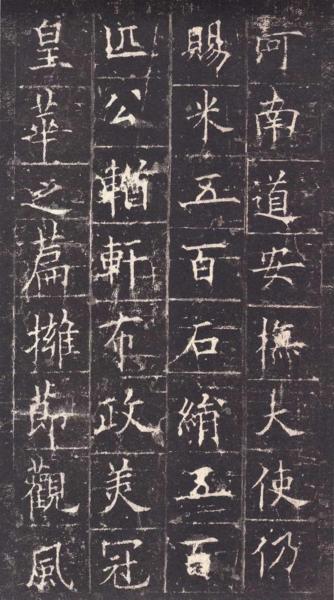 河南道安撫大使仍
賜米五百石絹五百
匹公輶軒布政美冠
皇華之篇擁節觀風